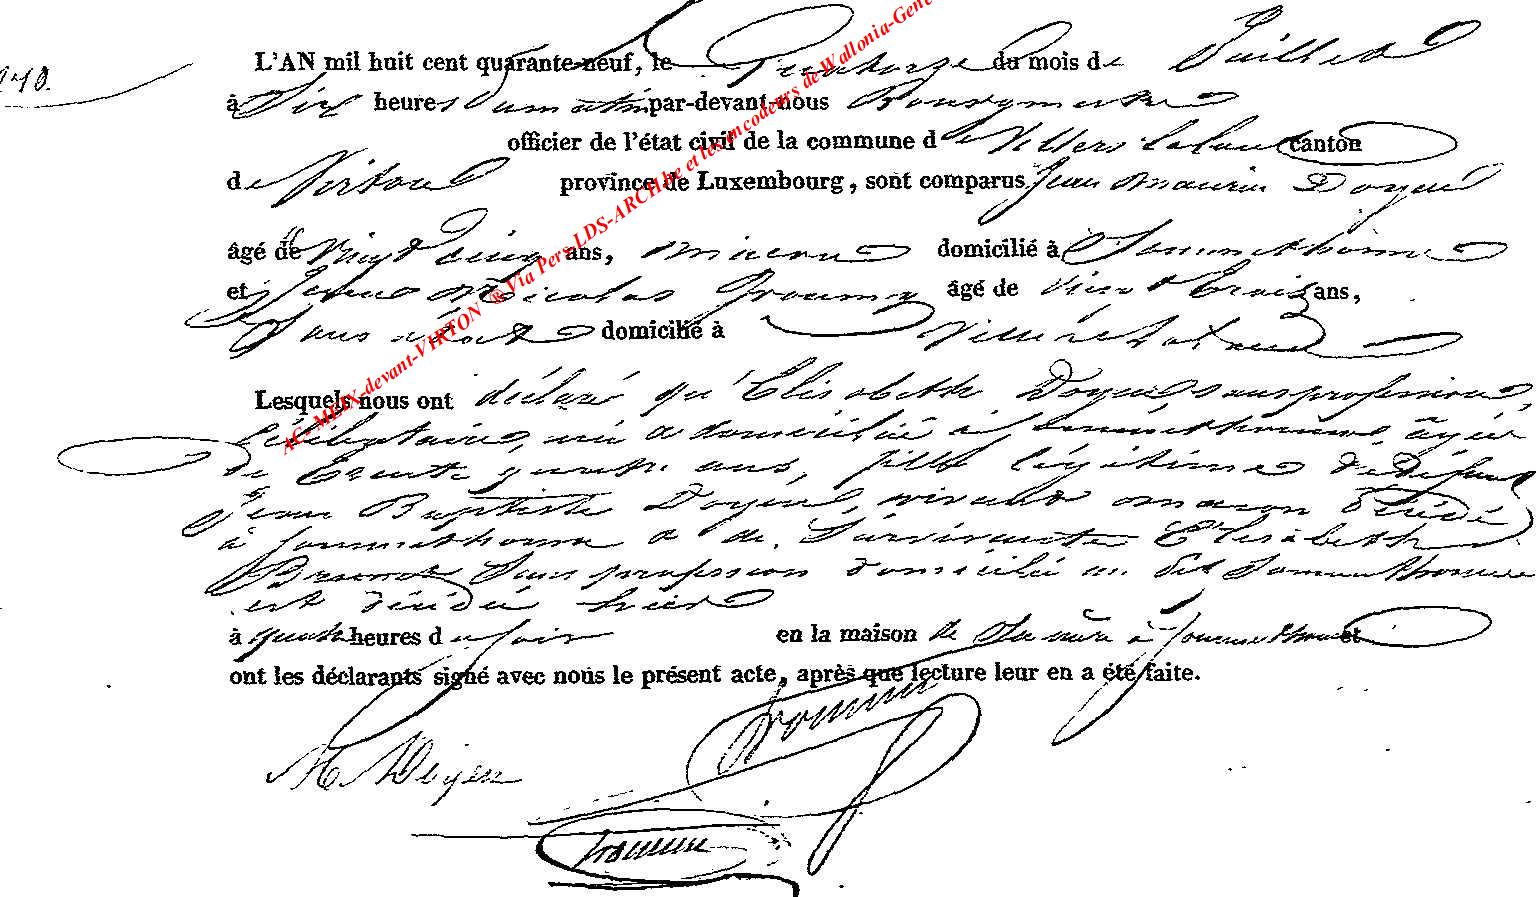 N° 10.
L'AN mil huit cent quarante-neuf, le Quatorze du mois de Juillet
à Six heures du matin par-devant nous Bourgmestre
officier de l'état civil de la commune de Villers la loue canton
de Virton province de Luxembourg, sont comparus Jean Maurin Doyen
âgé de vingt cinq ans, macon domicilié à Sommethonne
et Jean Nicolas âgé de vingt trois ans,
Sans état domicilié à Villers la loue
Lesquels nous ont déclaré qu'Elisabeth Doyen sans profession,
Célibataire, née et domiciliée à Sommethonne, âgée
de trente quatre ans, fille légitime de défunt
Jean Baptiste Doyen, vivant macon décédé
à Sommethonne et de Survivante Elisabeth
Sans profession domicilié au dit Sommethonne
est décédée hier
à quatre heures du soir en la maison de Sa mère à Sommethonne et
ont les déclarants signé avec nous le présent acte, après que lecture leur en a été faite.
M. Doyen
AC-MEIX-devant-VIRTON ® Via Pers LDS-ARCHbe et les encodeurs de Wallonia-Gene